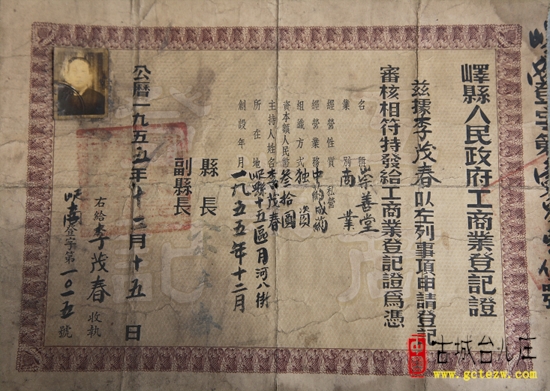 嶧縣人民政府工商業登記證
茲據李茂春以左列事項申請登記
審核相符特發給工商業登記證爲憑
崇善堂
業別 商業
經營性質 私營
經營業務 中药成药
組織方式 独資
資本額人民幣 叁拾圓
主持人姓名 李茂春
所在地 嶧縣十五區月河八街
創設年月 一九五五年十二月
縣長
副縣長
公曆一九五五年十二月十五日
右給李茂春收執
字第一〇二五號
古城台儿庄
www.gctezw.com